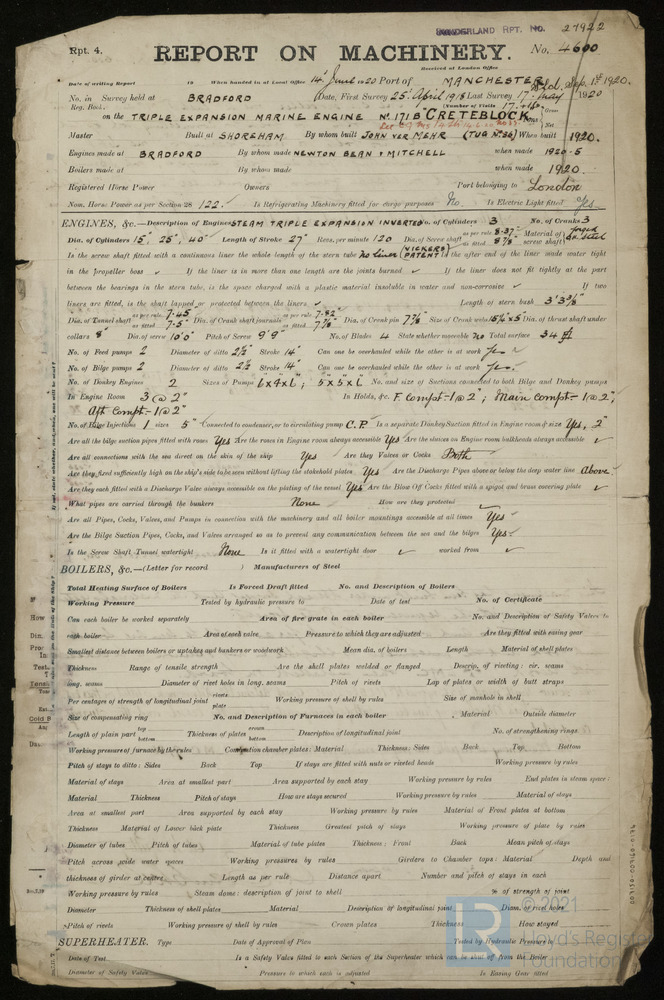 SUNDERLAND RPT. NO. 27922
Rpt. 4. REPORT ON MACHINERY. No. 4600
Received at London Office
Date of writing Report 19 When handed in at Local Office 14 June 1920 Port of MANCHESTER
No. in Survey held at BRADFORD Date, First Survey 25 April 1918 Last Survey 17 May 1920
Reg. Book. (Number of Visits
on the TRIPLE EXPANSION MARINE ENGINE No 171B "CRETEBLOCK"
Master Built at SHOREHAM By whom built JOHN VER MEHR (TUG No 30) When built 1920.
Engines made at BRADFORD By whom made NEWTON BEAN & MITCHELL when made 1920-5
Boilers made at By whom made when made 1920.
Registered Horse Power Owners Port belonging to London
Nom. Horse Power as per Section 28 122. Is Refrigerating Machinery fitted for cargo purposes No. Is Electric Light fitted Yes
ENGINES, &c.—Description of Engines STEAM TRIPLE EXPANSION INVERTED No. of Cylinders 3 No. of Cranks 3
Dia. of Cylinders 15", 25", 40" Length of Stroke 27" Revs. per minute 120 Dia. of Screw shaft as per rule 8.37 as fitted 8 7/8 Material of screw shaft Forged In. Steel
Is the screw shaft fitted with a continuous liner the whole length of the stern tube No liner (VICKERS PATENT) Is the after end of the liner made water tight
in the propeller boss If the liner is in more than one length are the joints burned If the liner does not fit tightly at the part
between the bearings in the stern tube, is the space charged with a plastic material insoluble in water and non-corrosive If two
liners are fitted, is the shaft lapped or protected between the liners Length of stern bush 3' 3 3/8"
Dia. of Tunnel shaft as per rule 7.45 as fitted 7.5 Dia. of Crank shaft journals as per rule 7.82 as fitted 7 7/8 Dia. of Crank pin 7 7/8 Size of Crank webs 15 1/2 x 5 Dia. of thrust shaft under
collars 8" Dia. of screw 10'0" Pitch of Screw 9'9" No. of Blades 4 State whether moveable No Total surface 34
No. of Feed pumps 2 Diameter of ditto 2 1/2 Stroke 14" Can one be overhauled while the other is at work Yes
No. of Bilge pumps 2 Diameter of ditto 2 1/2 Stroke 14" Can one be overhauled while the other is at work Yes.
No. of Donkey Engines 2 Sizes of Pumps 6x4x6; 5x5x6 No. and size of Suctions connected to both Bilge and Donkey pumps
In Engine Room 3 @ 2" In Holds, &c. F. Compt-1@2"; Main Compt-1@2";
Aft Compt-1@2"
No. of Bilge Injections 1 sizes 5" Connected to condenser, or to circulating pump C.P. Is a separate Donkey Suction fitted in Engine room & size Yes, 2"
Are all the bilge suction pipes fitted with roses Yes Are the roses in Engine room always accessible Yes Are the sluices on Engine room bulkheads always accessible
Are all connections with the sea direct on the skin of the ship Yes Are they Valves or Cocks Both
Are they fixed sufficiently high on the ship's side to be seen without lifting the stokehold plates Yes Are the Discharge Pipes above or below the deep water line Above
Are they each fitted with a Discharge Valve always accessible on the plating of the vessel Yes Are the Blow Off Cocks fitted with a spigot and brass covering plate
What pipes are carried through the bunkers None How are they protected
Are all Pipes, Cocks, Valves, and Pumps in connection with the machinery and all boiler mountings accessible at all times Yes
Are the Bilge Suction Pipes, Cocks, and Valves arranged so as to prevent any communication between the sea and the bilges Yes
Is the Screw Shaft Tunnel watertight None Is it fitted with a watertight door worked from
BOILERS, &c.—(Letter for record ) Manufacturers of Steel
Total Heating Surface of Boilers Is Forced Draft fitted No. and Description of Boilers
Working Pressure Tested by hydraulic pressure to Date of test No. of Certificate
Can each boiler be worked separately Area of fire grate in each boiler No. and Description of Safety Valves to
each boiler Area of each valve Pressure to which they are adjusted Are they fitted with easing gear
Smallest distance between boilers or uptakes and bunkers or woodwork Mean dia. of boilers Length Material of shell plates
Thickness Range of tensile strength Are the shell plates welded or flanged Descrip. of riveting: cir. seams
long. seams Diameter of rivet holes in long. seams Pitch of rivets Lap of plates or width of butt straps
Per centages of strength of longitudinal joint rivets plate Working pressure of shell by rules Size of manhole in shell
Size of compensating ring No. and Description of Furnaces in each boiler Material Outside diameter
Length of plain part top bottom Thickness of plates crown bottom Description of longitudinal joint No. of strengthening rings
Working pressure of furnace by the rules Combustion chamber plates: Material Thickness: Sides Back Top Bottom
Pitch of stays to ditto: Sides Back Top If stays are fitted with nuts or riveted heads Working pressure by rules
Material of stays Area at smallest part Area supported by each stay Working pressure by rules End plates in steam space:
Material Thickness Pitch of stays How are stays secured Working pressure by rules Material of stays
Area at smallest part Area supported by each stay Working pressure by rules Material of Front plates at bottom
Thickness Material of Lower back plate Thickness Greatest pitch of stays Working pressure of plate by rules
Diameter of tubes Pitch of tubes Material of tube plates Thickness: Front Back Mean pitch of stays
Pitch across wide water spaces Working pressures by rules Girders to Chamber tops: Material Depth and
thickness of girder at centre Length as per rule Distance apart Number and pitch of stays in each
Working pressure by rules Steam dome: description of joint to shell % of strength of joint
Diameter Thickness of shell plates Material Description of longitudinal joint Diam. of rivet holes
Pitch of rivets Working pressure of shell by rules Crown plates Thickness How stayed
SUPERHEATER. Type Date of Approval of Plan Tested by Hydraulic Pressure to
Date of Test Is a Safety Valve fitted to each Section of the Superheater which can be shut off from the Boiler
Diameter of Safety Valve Pressure to which each is adjusted Is Easing Gear fitted
© 2021
Lloyd's Register
Foundation